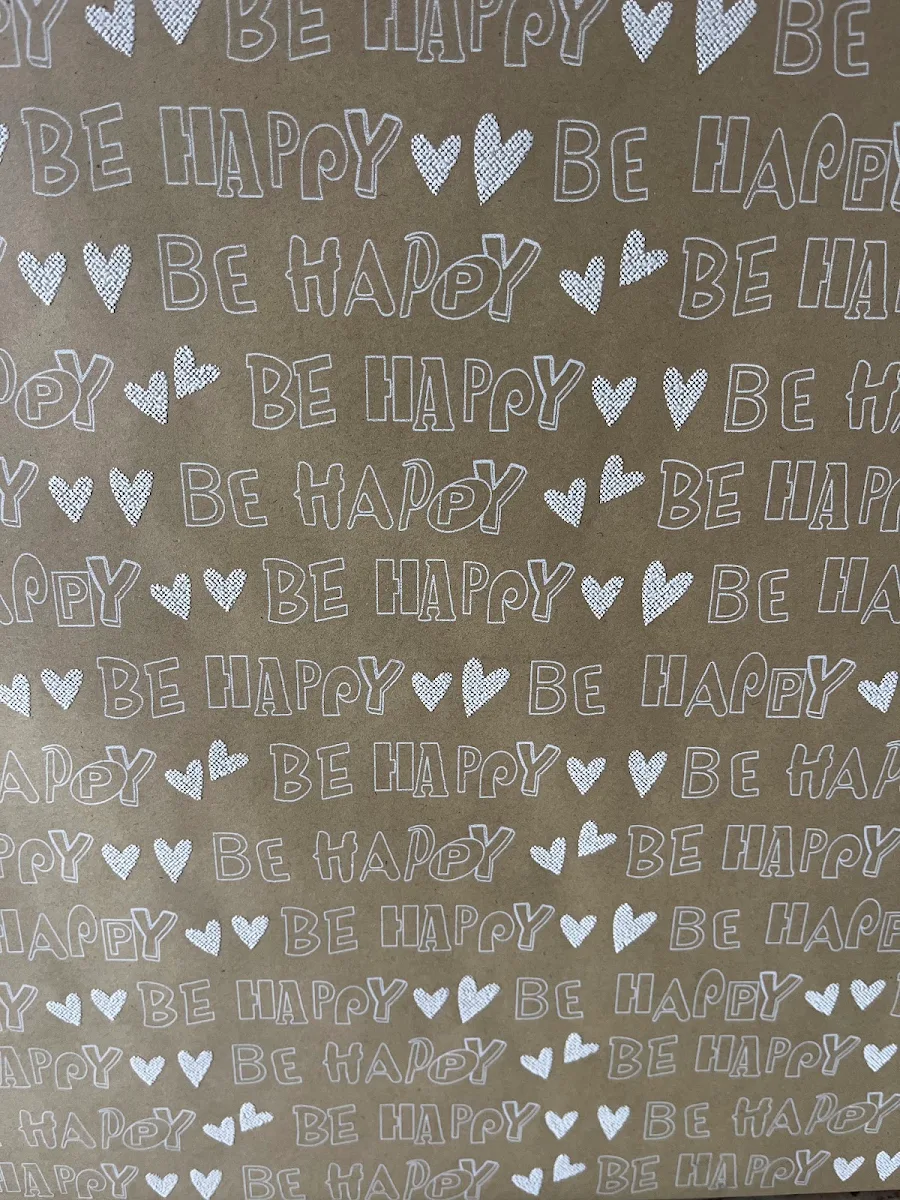 BE HAPPY BE
BE HAPPY BE HAPPY
BE HAPPY BE HA
PPY BE HAPPY BE H
Y BE HAPPY BE HAPP
APPY BE HAPPY BE HA
BE HAPPY BE HAPPY
APPY BE HAPPY BE HAP
PPY BE HAPPY BE HAPPY
HAPPY BE HAPPY BE HAPP
Y BE HAPPY BE HAPPY
APPY BE HAPPY BE HAPPY
HAPPY BE HAPPY BE HAPPY
HAPPY BE HAPPY BE HAPPY